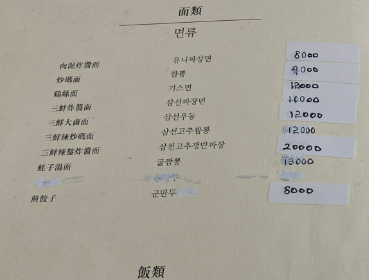 面類
면류
肉泥炸醬面 유니짜장면 8000
炒碼面 짬뽕 9000
鷄絲面 기스면 13000
三鮮炸醬面 삼선짜장면 10000
三鮮大鹵面 삼선우동 12000
三鮮辣炒碼面 삼선고추짬뽕 12000
三鮮辣盤炸醬面 삼선고추쟁반짜장 20000
蚝子湯面 굴짬뽕 13000
煎餃子 군만두 8000
飯類